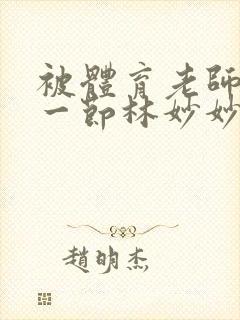 被體育老師
一節林妙妙
趙明杰